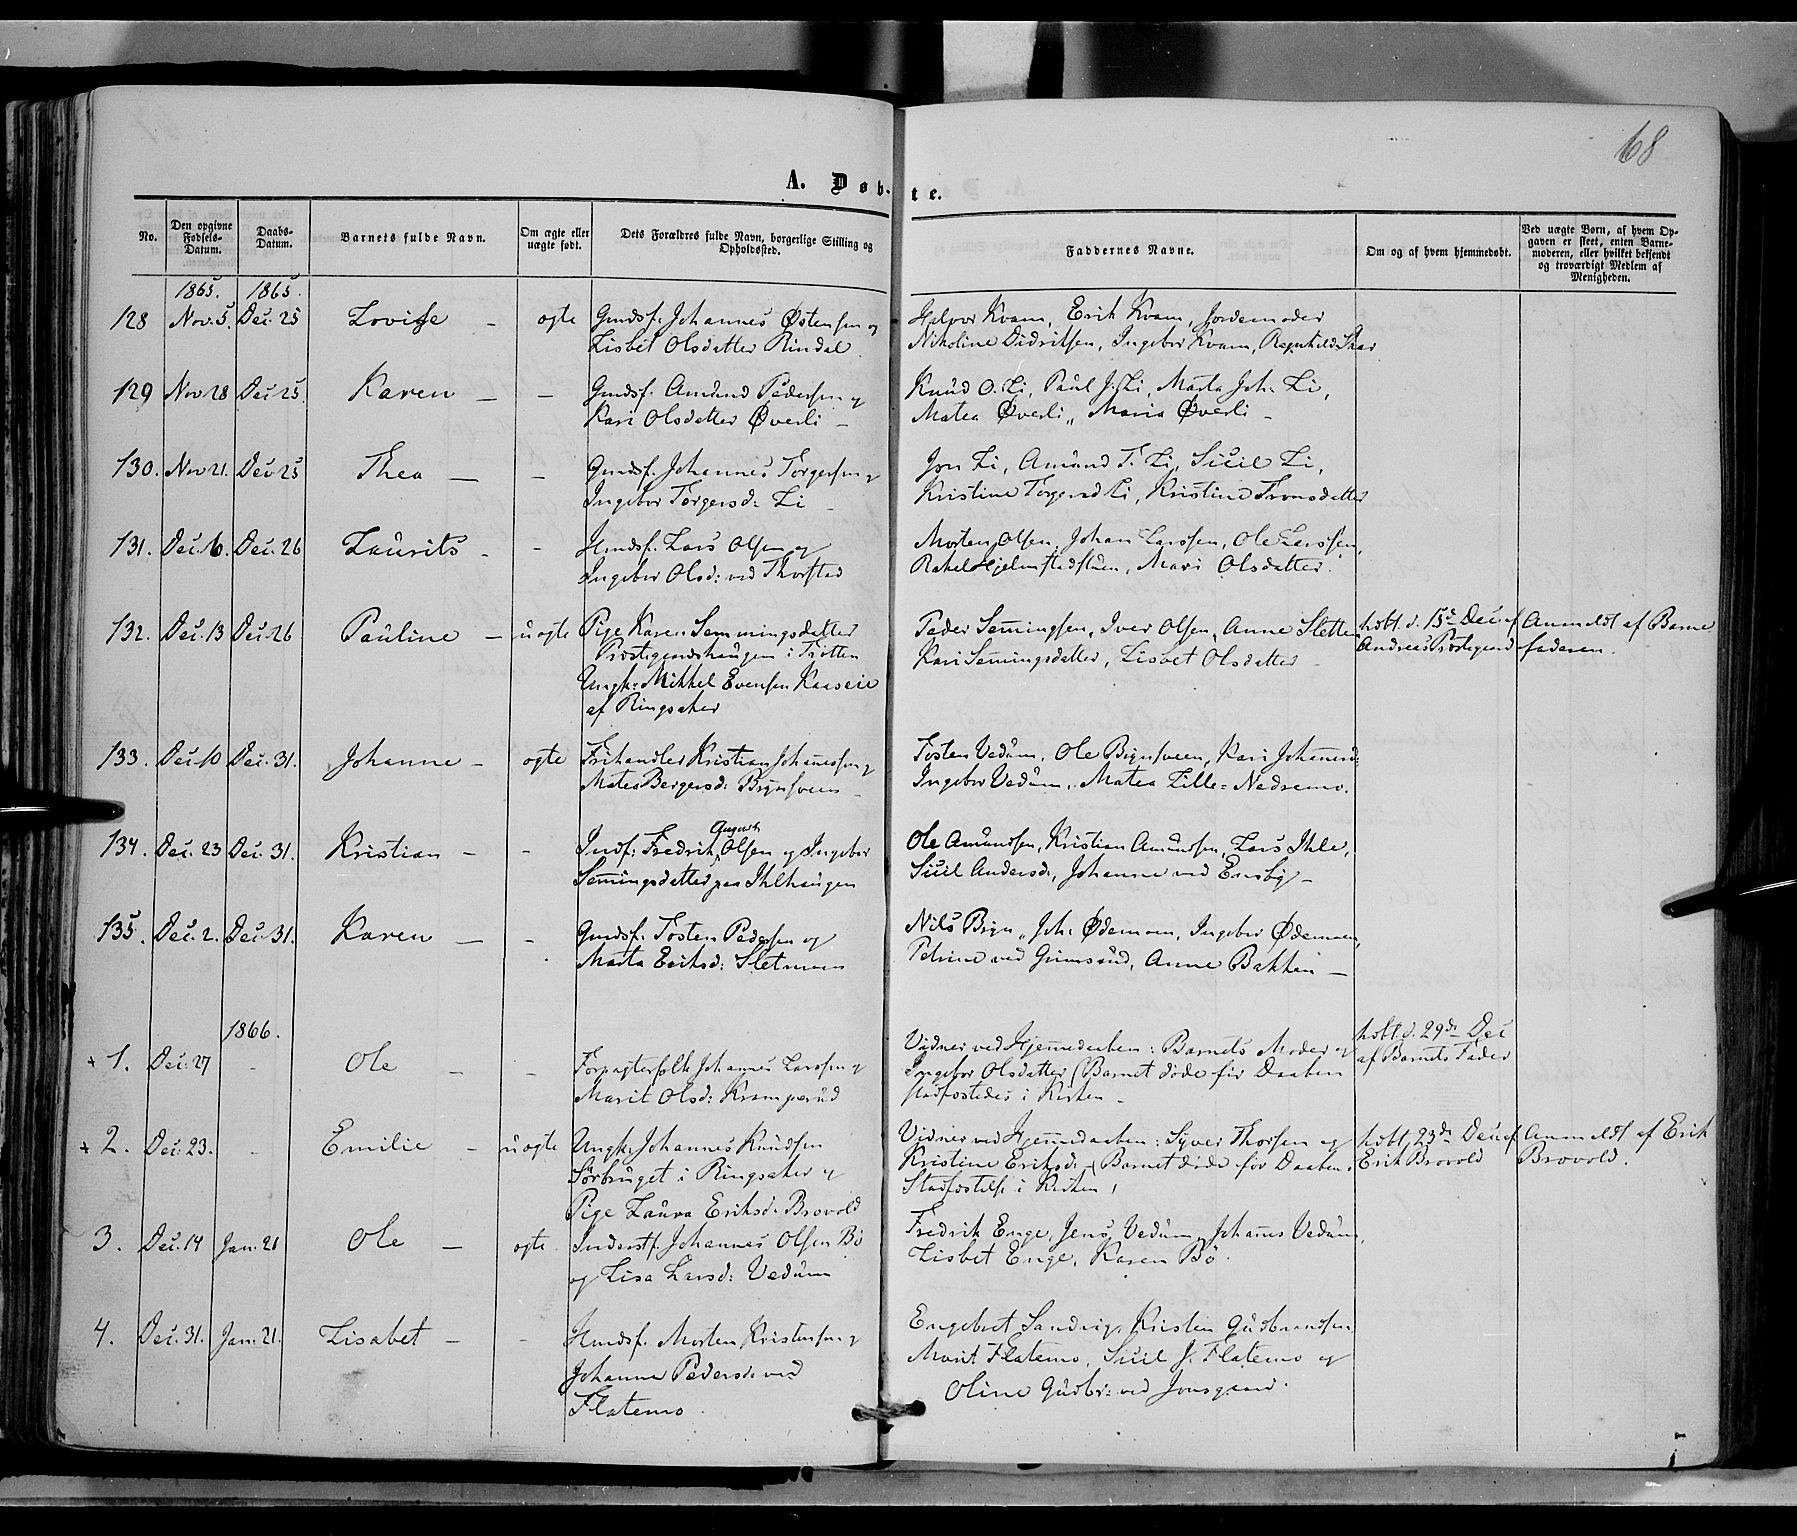 68
A. Døb-te.
No.
Den opgivne Fødsels-Datum.
Daabs-Datum.
Barnets fulde Navn.
Om ægte eller uægte født.
Dets Forældres fulde Navn, borgerlige Stilling og Opholdssted.
Faddernes Navne.
Om og af hvem hjemmedøbt.
Ved uægte Børn, af hvem Opgaven er skeet, enten Barnemoderen, eller hvilket bekjendt og troværdigt Medlem af Menigheden.
1865. 1865.
128 Nov. 5. Dec. 25 Lovise - ægte Gmdsf. Johannes Østensen og
Lisbet Olsdatter Rindal
Halvor Kvam, Erik Kvam, Jordemoder
Nikoline Didriksen, Ingebor Kvam, Ragnhild
129 Nov 28 Dec 25 Karen - - Gmdsf. Amund Pedersen og
Kari Olsdatter Øverli -
Knud O. Li, Paul J. Li, Marta Joh. Li,
Matea Øverli, Maria Øverli -
130. Nov 21. Dec 25 Thea - - Gmdsf. Johannes Torgersen og
Ingebor Torgersd: Li -
Jon Li, Amund T. Li, Sicil Li,
Kristine Torgersd Li, Kristine Tronsdatter
131. Dec. 6. Dec. 26 Laurits - - Hmdsf. Lars Olsen og
Ingebor Olsd: ved Thorstad
Morten Olsen, Johan Larssen, Ole Larssen,
Rakel Hjelmstadstuen, Mari Olsdatter.
132. Dec. 13 Dec. 26 Pauline - uægte Pige Karen Semmingsdatter
Præstegaardshaugen i Trætten
Ungk: Mikkel Evensen Kaaseie
af Ringsaker
Peder Semingsen, Iver Olsen, Anne Sletten
Kari Semingsdatter, Lisbet Olsdatter -
hdbt. d. 15d Dec af
Andreas Præstegaard
Anmeldt af Barne
faderen.
133. Dec 10 Dec. 31. Johanne - ægte Frihandler Kristian Johannessen og
Matea Bergersd: Brynsveen
Tosten Vedum, Ole Brynsveen, Kari Johannesd:
Ingebor Vedum, Matea Lille-Nedremo.
134. Dec. 23 Dec. 31. Kristian - - Indf: Fredrik August Olsen og Ingebor
Semingsdatter paa Ihlhaugen
Ole Amundsen, Kristian Amundsen, Lars Ihle,
Sicil Andersd., Johanne ved Ensby -
135. Dec. 2. Dec. 31. Karen - - Gmdsf. Tosten Pedersen og
Marta Eriksd: Sletmoen
Nils Bryn, Joh: Ødemoen, Ingebor Ødemoen,
Petrine ved Grimsrud, Anne Bakken -
1866.
+ 1. Dec. 27 - Ole - - Forpagterfolk Johannes Larssen og
Marit Olsd: Kramperud
Vidner ved Hjemmedaaben: Barnets Moder og
Ingebor Olsdatter (Barnet døde før Daaben
stadfæstedes i Kirken -
hdbt d. 29de Dec
af Barnets Fader
+ 2. Dec. 23. - Emilie - uægte Ungk: Johannes Knudsen
Sørbruget i Ringsaker og
Pige Laura Eriksd: Brovold
Vidner ved Hjemmedaaben: Syver Thorsen og
Kristine Eriksd: - (Barnet døde før Daabens
Stadfæstelse i Kirken)
hdbt. 23de Dec af
Erik Brovold
Anmeldt af Erik
Brovold.
3. Dec. 14 Jan. 21 Ole - ægte. Inderstf. Johannes Olsen Bø
og Lisa Larsd: Vedum
Fredrik Enge, Jens Vedum, Johannes Vedum,
Lisbet Enge, Karen Bø.
4. Dec. 31. Jan. 21. Lisabet - - Hmdsf. Morten Kristensen og
Johanne Pedersd: ved
Flatemo.
Engebret Sandvig, Kristen Gudbrandsen
Marit Flatemo, Sicil J. Flatemo og
Oline Gudbr: ved Jonsgaard.